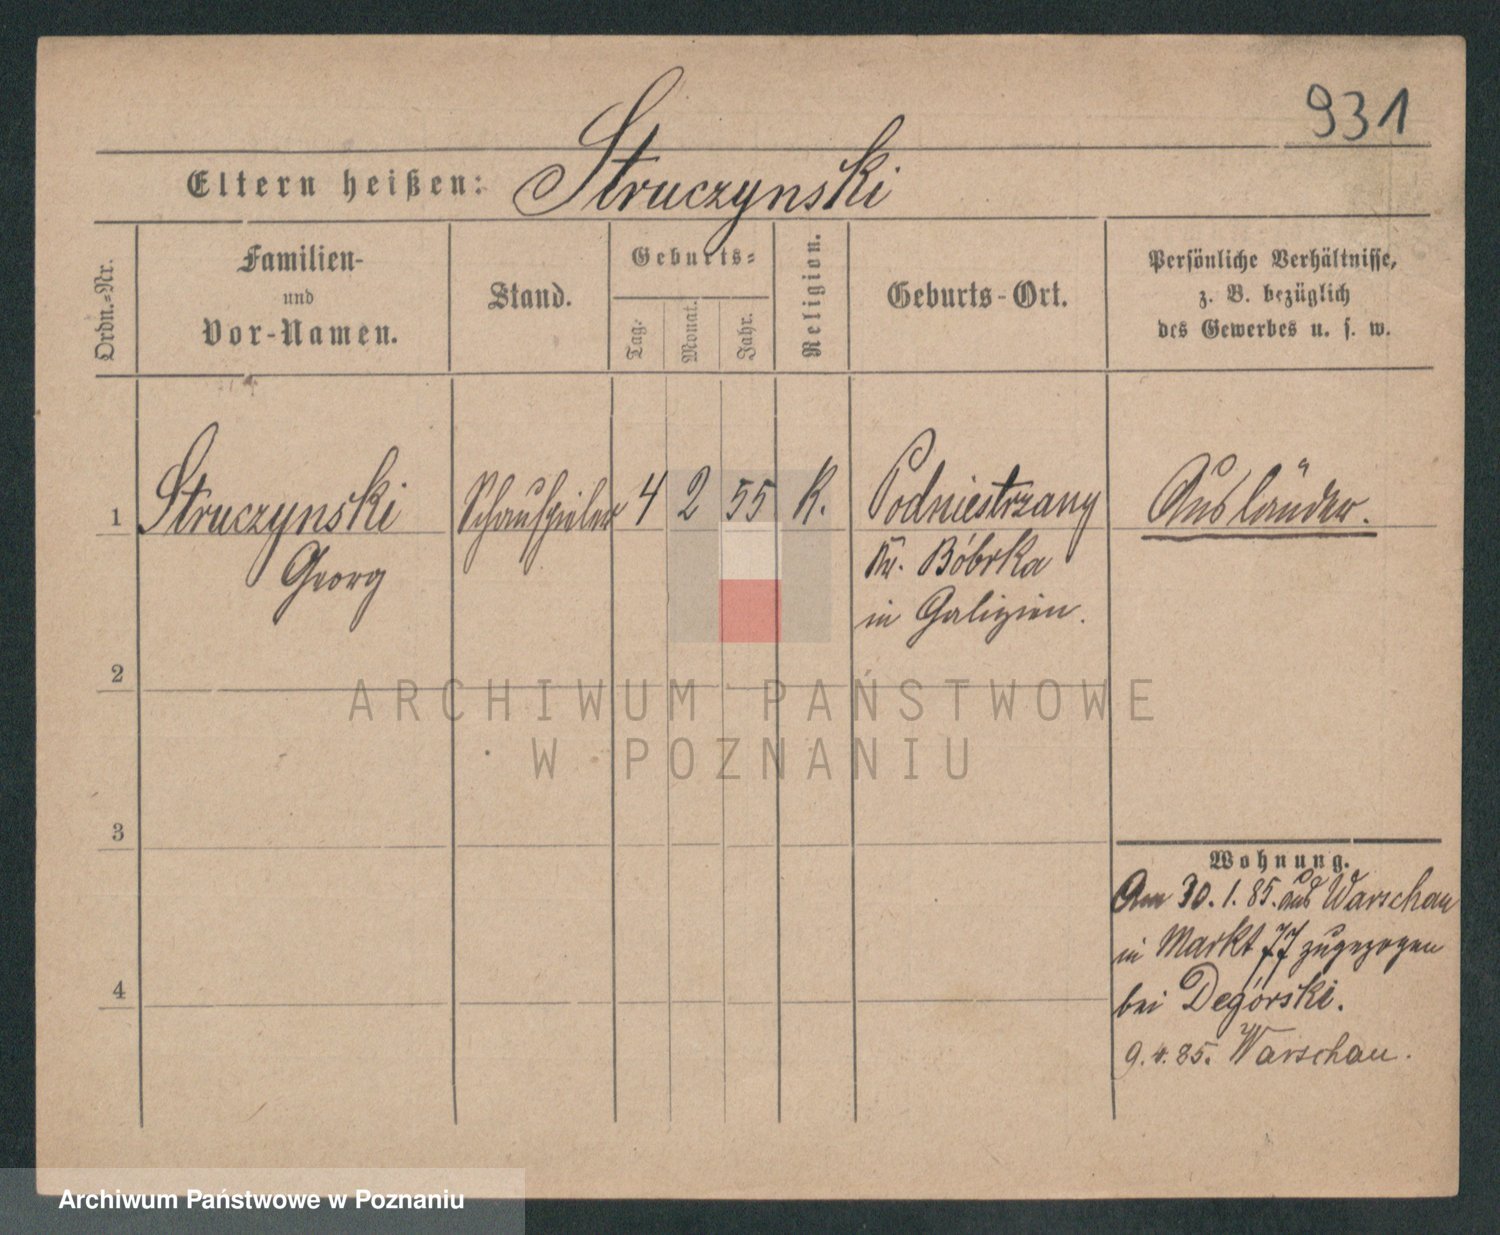 931
Eltern heißen: Struczynski
Ordn.-Nr.
Familien-
und
Vor-Namen.
Stand.
Geburts-
Tag.
Monat.
Jahr.
Religion.
Geburts-Ort.
Persönliche Verhältnisse,
z. B. bezüglich
des Gewerbes u. s. w.
1 Struczynski Schauspieler 4 2 55 K. Podniestrzany Ausländer.
Georg Kr. Bóbrka
in Galizien.
2
ARCHIWUM PAŃSTWOWE
W POZNANIU
3
Wohnung.
Am 30.1.85. aus Warschau
in Markt 77 zugezogen
4 bei Degórski.
9.4.85. Warschau.
Archiwum Państwowe w Poznaniu